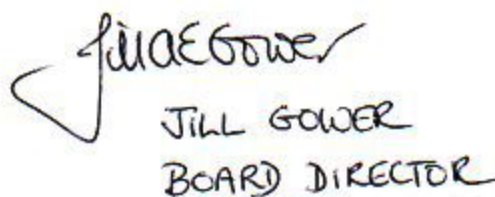 Jill A E Gower
JILL GOWER
BOARD DIRECTOR